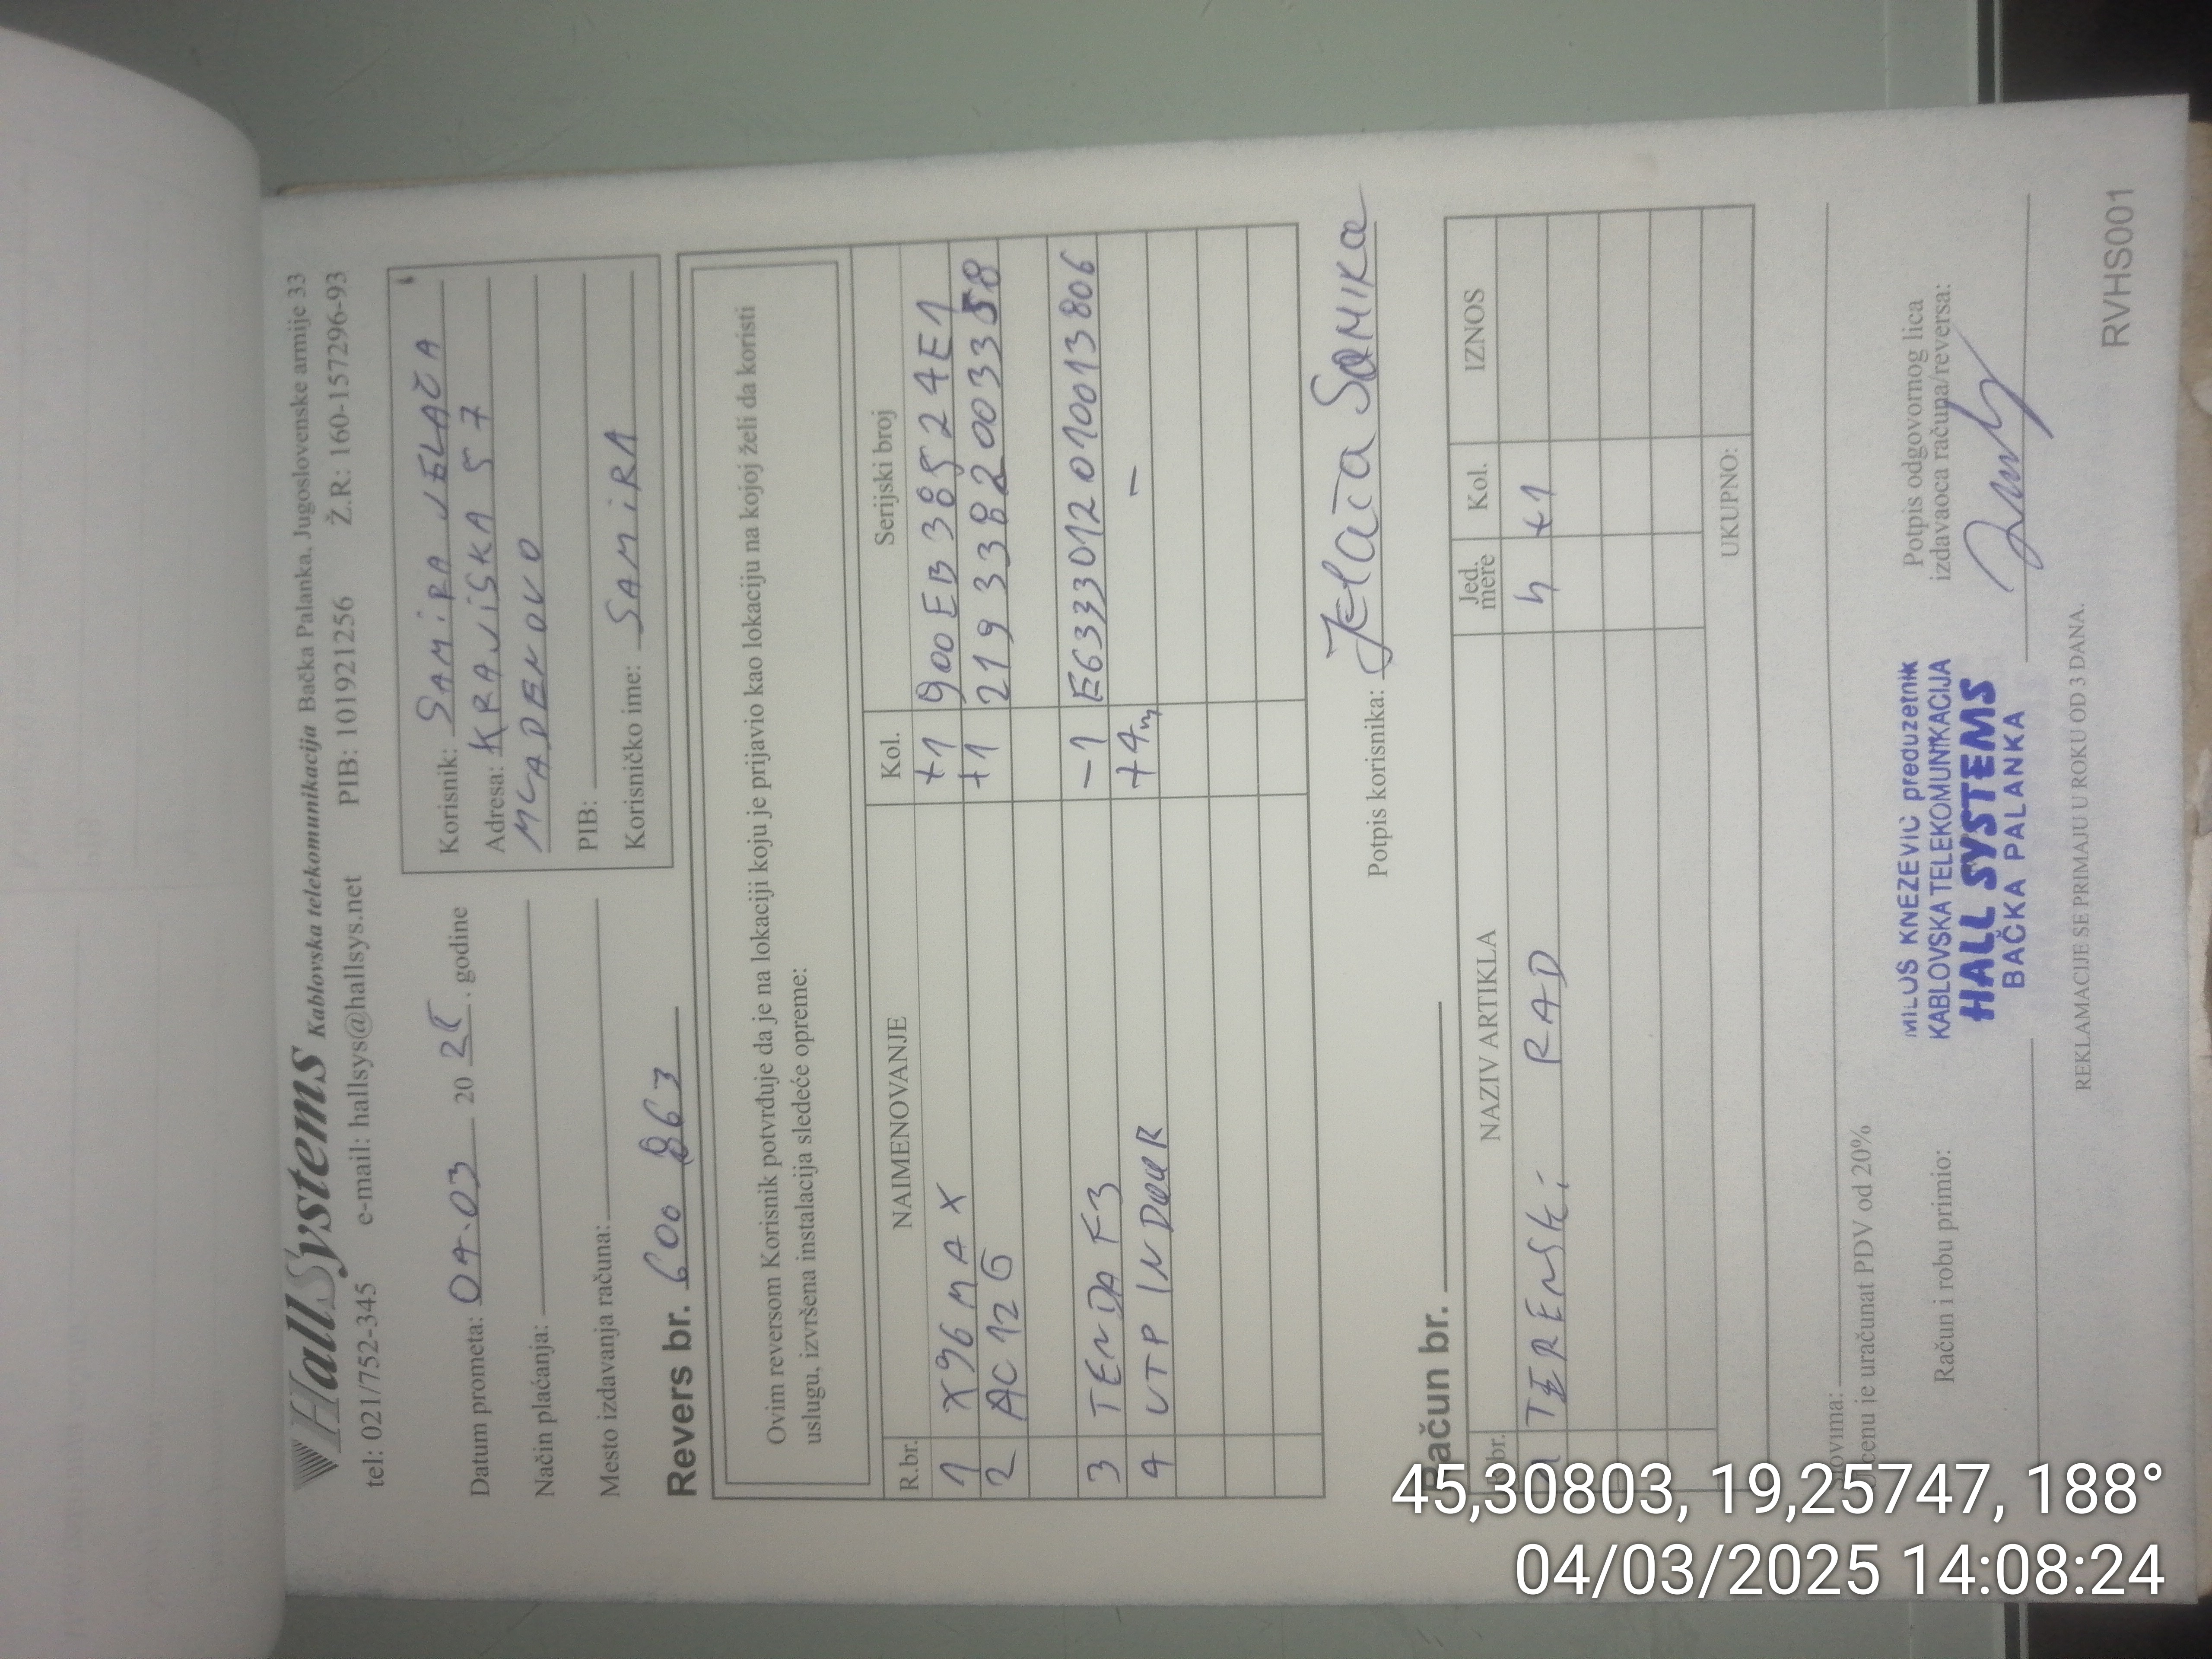 HallSystems Kablovska telekomunikacija Bačka Palanka, Jugoslovenske armije 33
tel: 021/752-345 e-mail: hallsys@hallsys.net PIB: 101921256 Ž.R: 160-157296-93
Datum prometa: 04.03 2025. godine
Način plaćanja:
Mesto izdavanja računa:
Korisnik: SAMiRA JELAČA
Adresa: KRAJiŠKA 57
MLADENOVO
PIB:
Korisničko ime: SAMiRA
Revers br. 600 863
Ovim reversom Korisnik potvrđuje da je na lokaciji koju je prijavio kao lokaciju na kojoj želi da koristi
uslugu, izvršena instalacija sledeće opreme:
R.br. NAIMENOVANJE Kol. Serijski broj
1 X96 MAX +1 900EB38524E1
2 AC12G +1 2193382003358
3 TENDA F3 -1 E6333012010013806
4 UTP INDOOR +4m -
Potpis korisnika: Jelača Samira
Račun br.
R.br. NAZIV ARTIKLA Jed. mere Kol. IZNOS
1 TERENSKi RAD h +1
UKUPNO:
Slovima:
U cenu je uračunat PDV od 20%
Račun i robu primio:
MILOŠ KNEŽEVIĆ preduzetnik
KABLOVSKA TELEKOMUNIKACIJA
HALL SYSTEMS
BAČKA PALANKA
Potpis odgovornog lica
izdavaoca računa/reversa:
REKLAMACIJE SE PRIMAJU U ROKU OD 3 DANA.
RVHS001
45,30803, 19,25747, 188°
04/03/2025 14:08:24